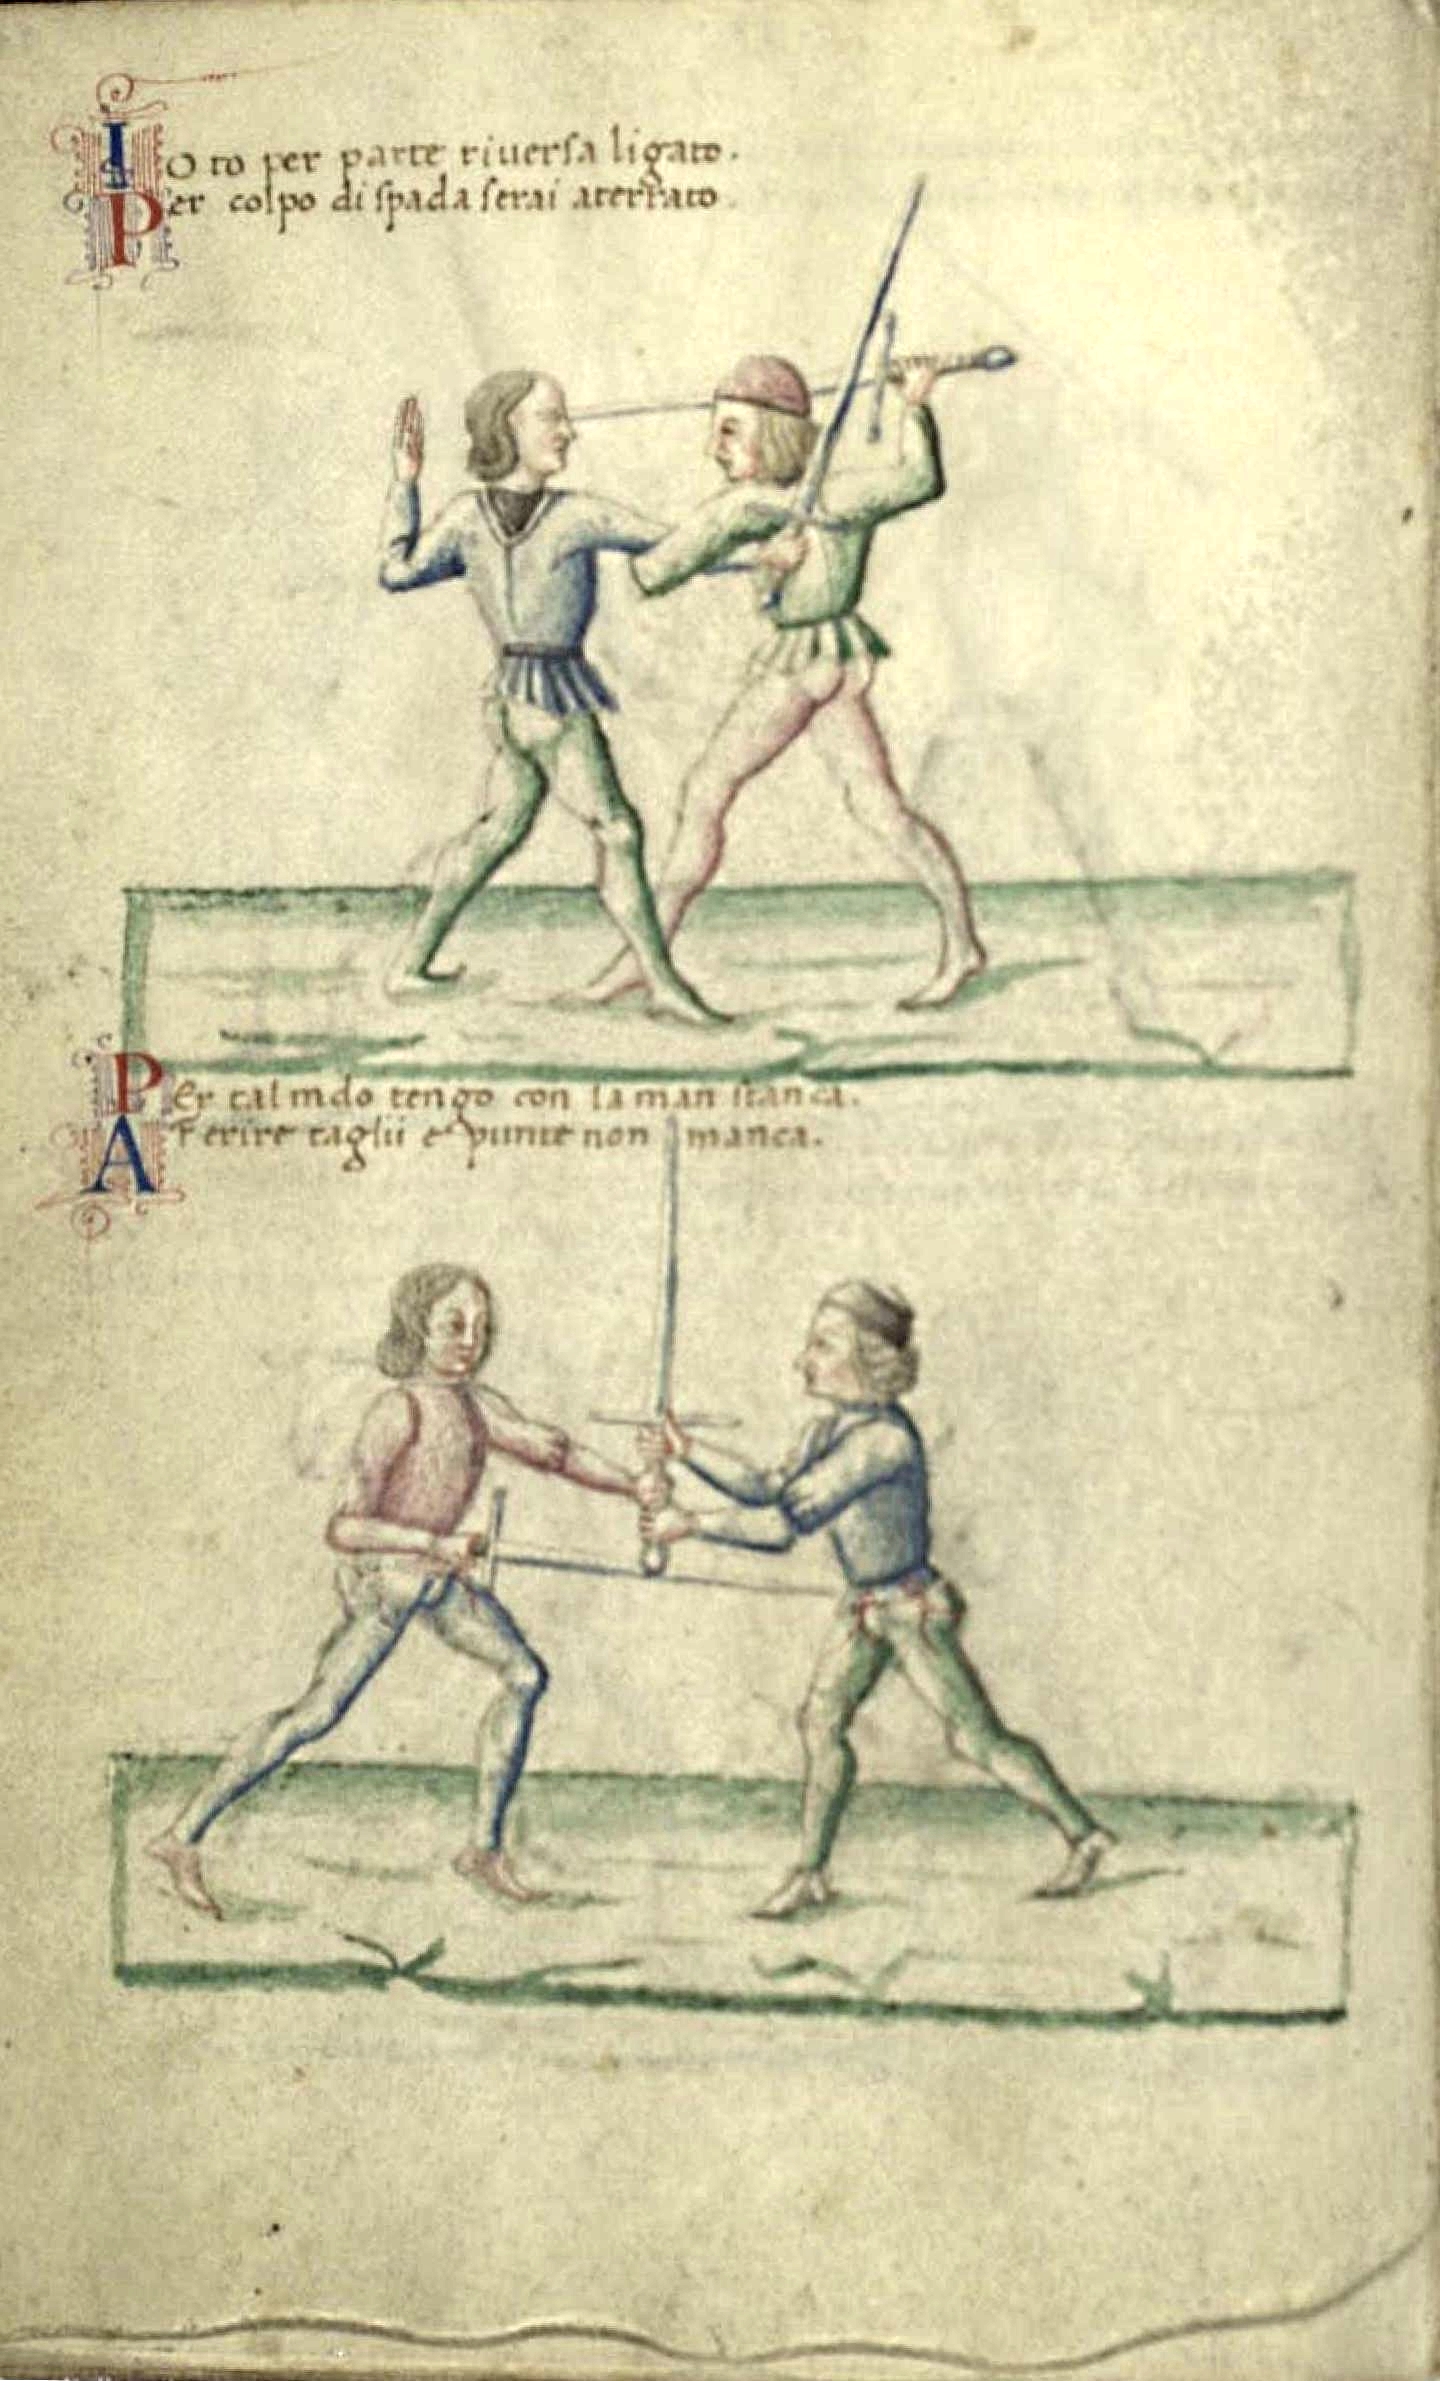 Io to per parte riuersa ligato.
Per colpo di spada serai aterrato.
Per tal modo tengo con la man stanca.
A ferire taglii e punte non manca.